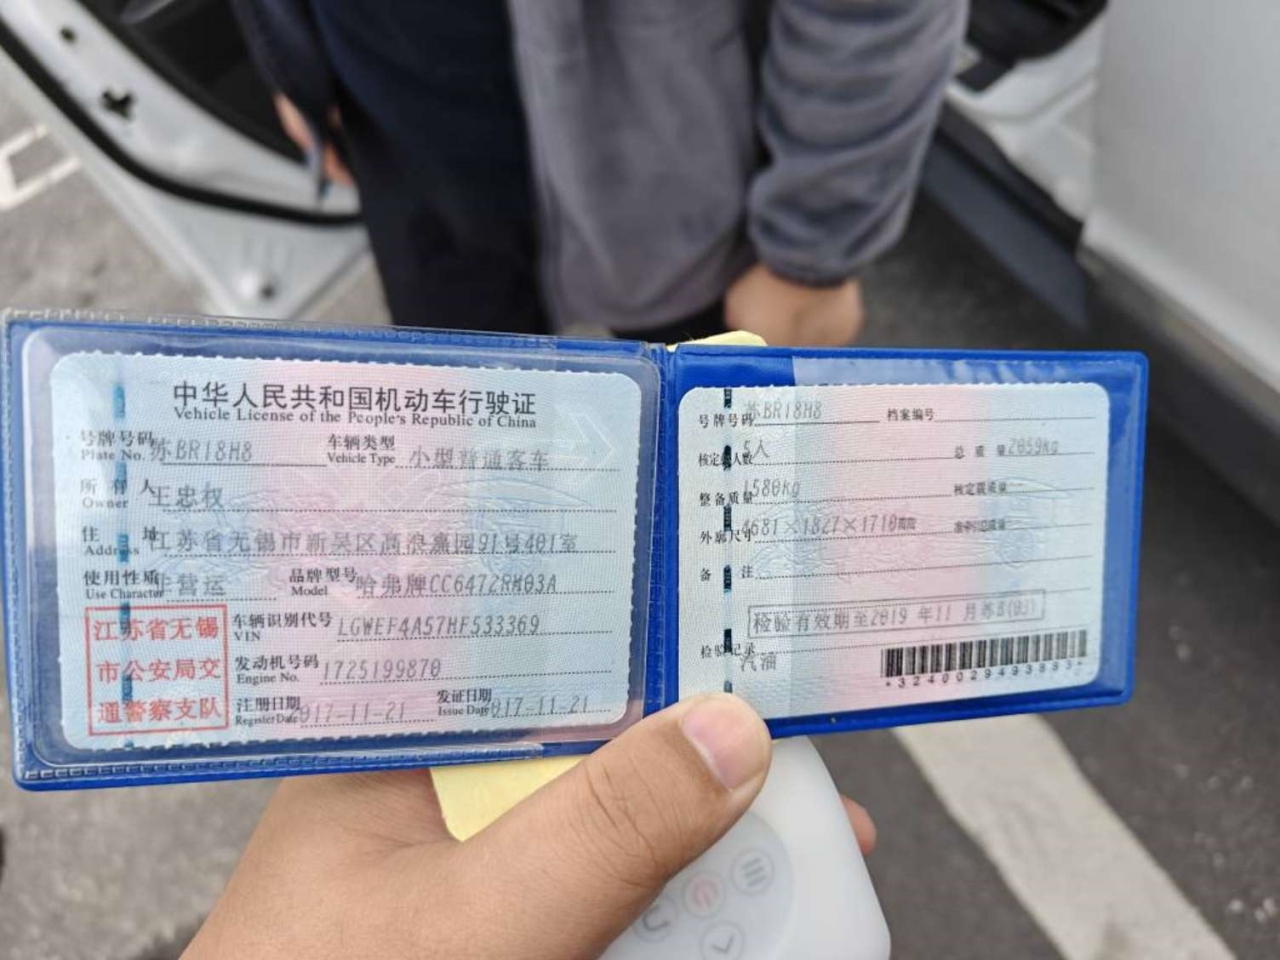 中华人民共和国机动车行驶证
Vehicle License of the People's Republic of China
号牌号码 苏BR18H8 车辆类型 小型普通客车
Plate No. Vehicle Type
所有人 王忠权
Owner
住址 江苏省无锡市新吴区高浪嘉园91号401室
Address
使用性质 非营运 品牌型号 哈弗牌CC6472RM03A
Use Character Model
江苏省无锡
市公安局交
通警察支队
车辆识别代号 LGWEF4A57HF533369
VIN
发动机号码 1725199870
Engine No.
注册日期 017-11-21 发证日期 017-11-21
Register Date Issue Date
号牌号码 苏BR18H8 档案编号
核定载人数 5人 总质量 2059kg
整备质量 1580kg 核定载质量
外廓尺寸 4681×1827×1710mm 准牵引总质量
备注
检验有效期至2019年11月苏B(03)
检验记录
汽油
*3240029493893*